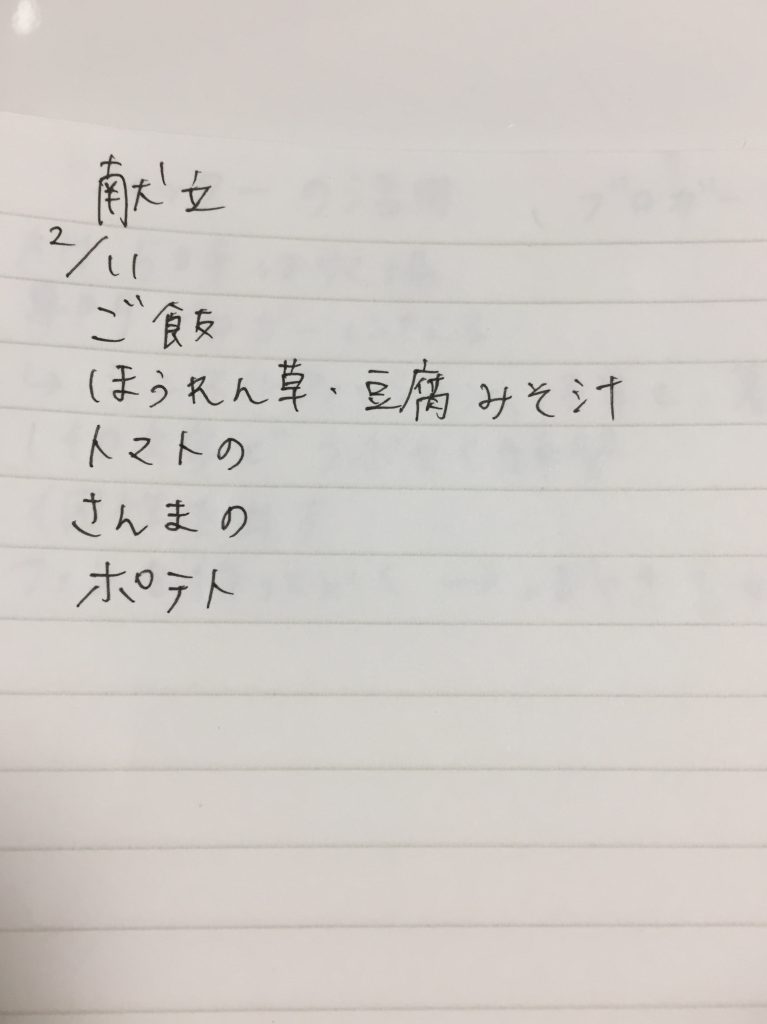 献立
2/11
ご飯
ほうれん草・豆腐みそ汁
トマトの
さんまの
ポテト